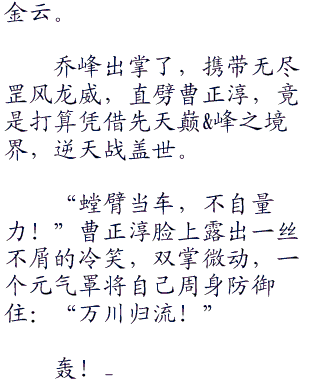 金云。
乔峰出掌了，携带无尽
罡风龙威，直劈曹正淳，竟
是打算凭借先天巅&峰之境
界，逆天战盖世。
“螳臂当车，不自量
力！”曹正淳脸上露出一丝
不屑的冷笑，双掌微动，一
个元气罩将自己周身防御
住：“万川归流！”
轰！